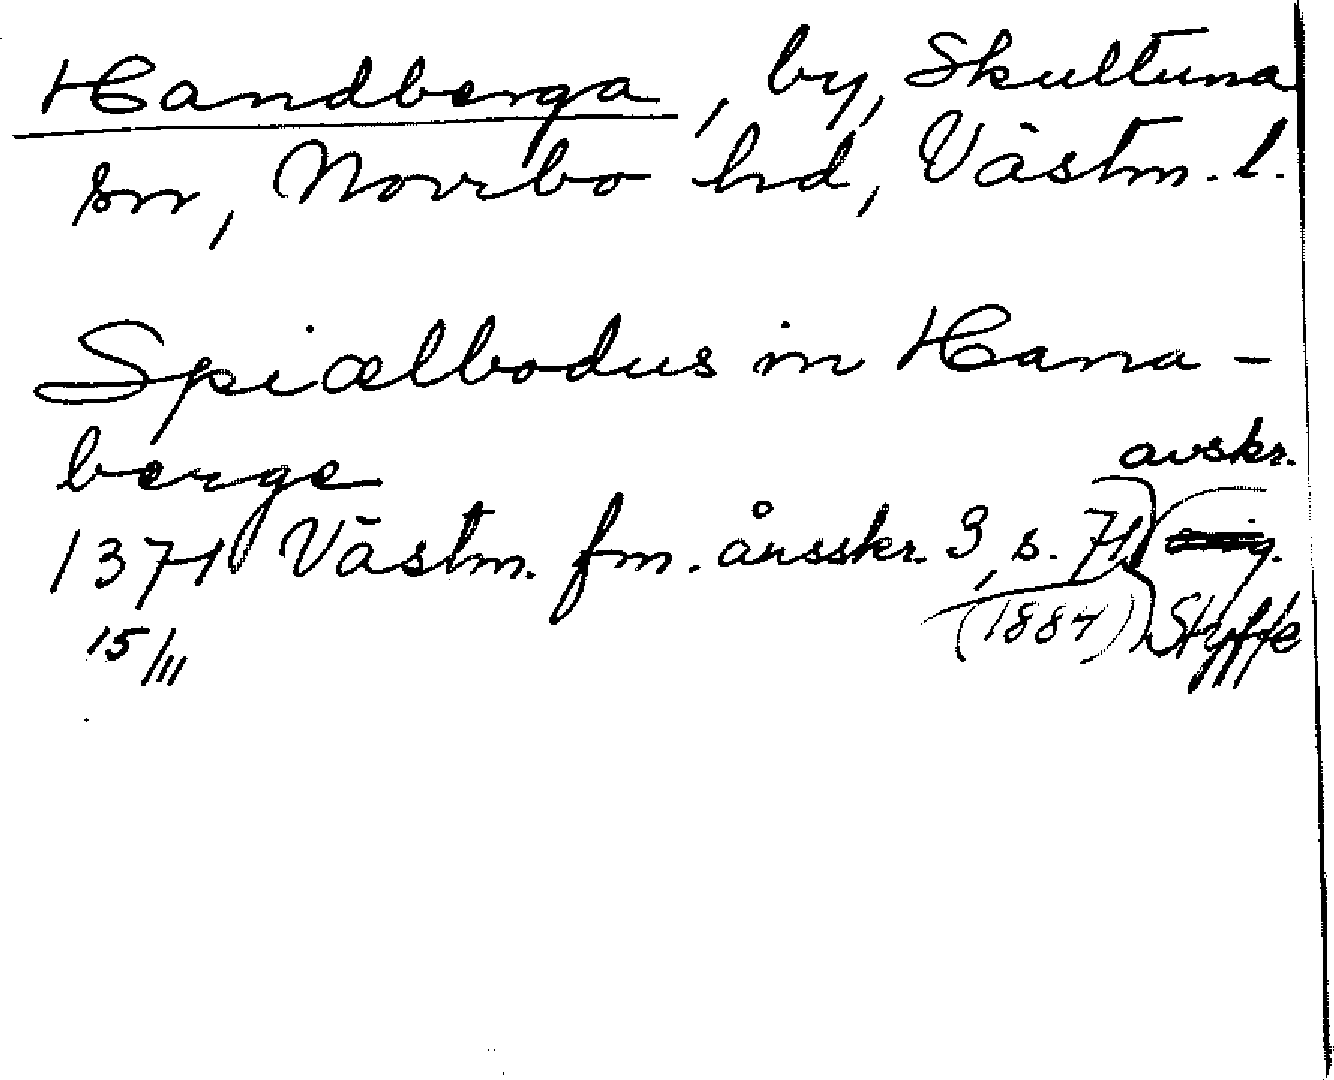 Handberga, by, Skultuna
sn, Norrbo hd, Västm. l.
Spiælbodus in Hana-
berge
avskr.
1371 Västm. fm. årsskr. 3, s. 71
15/III (1884) Styffe